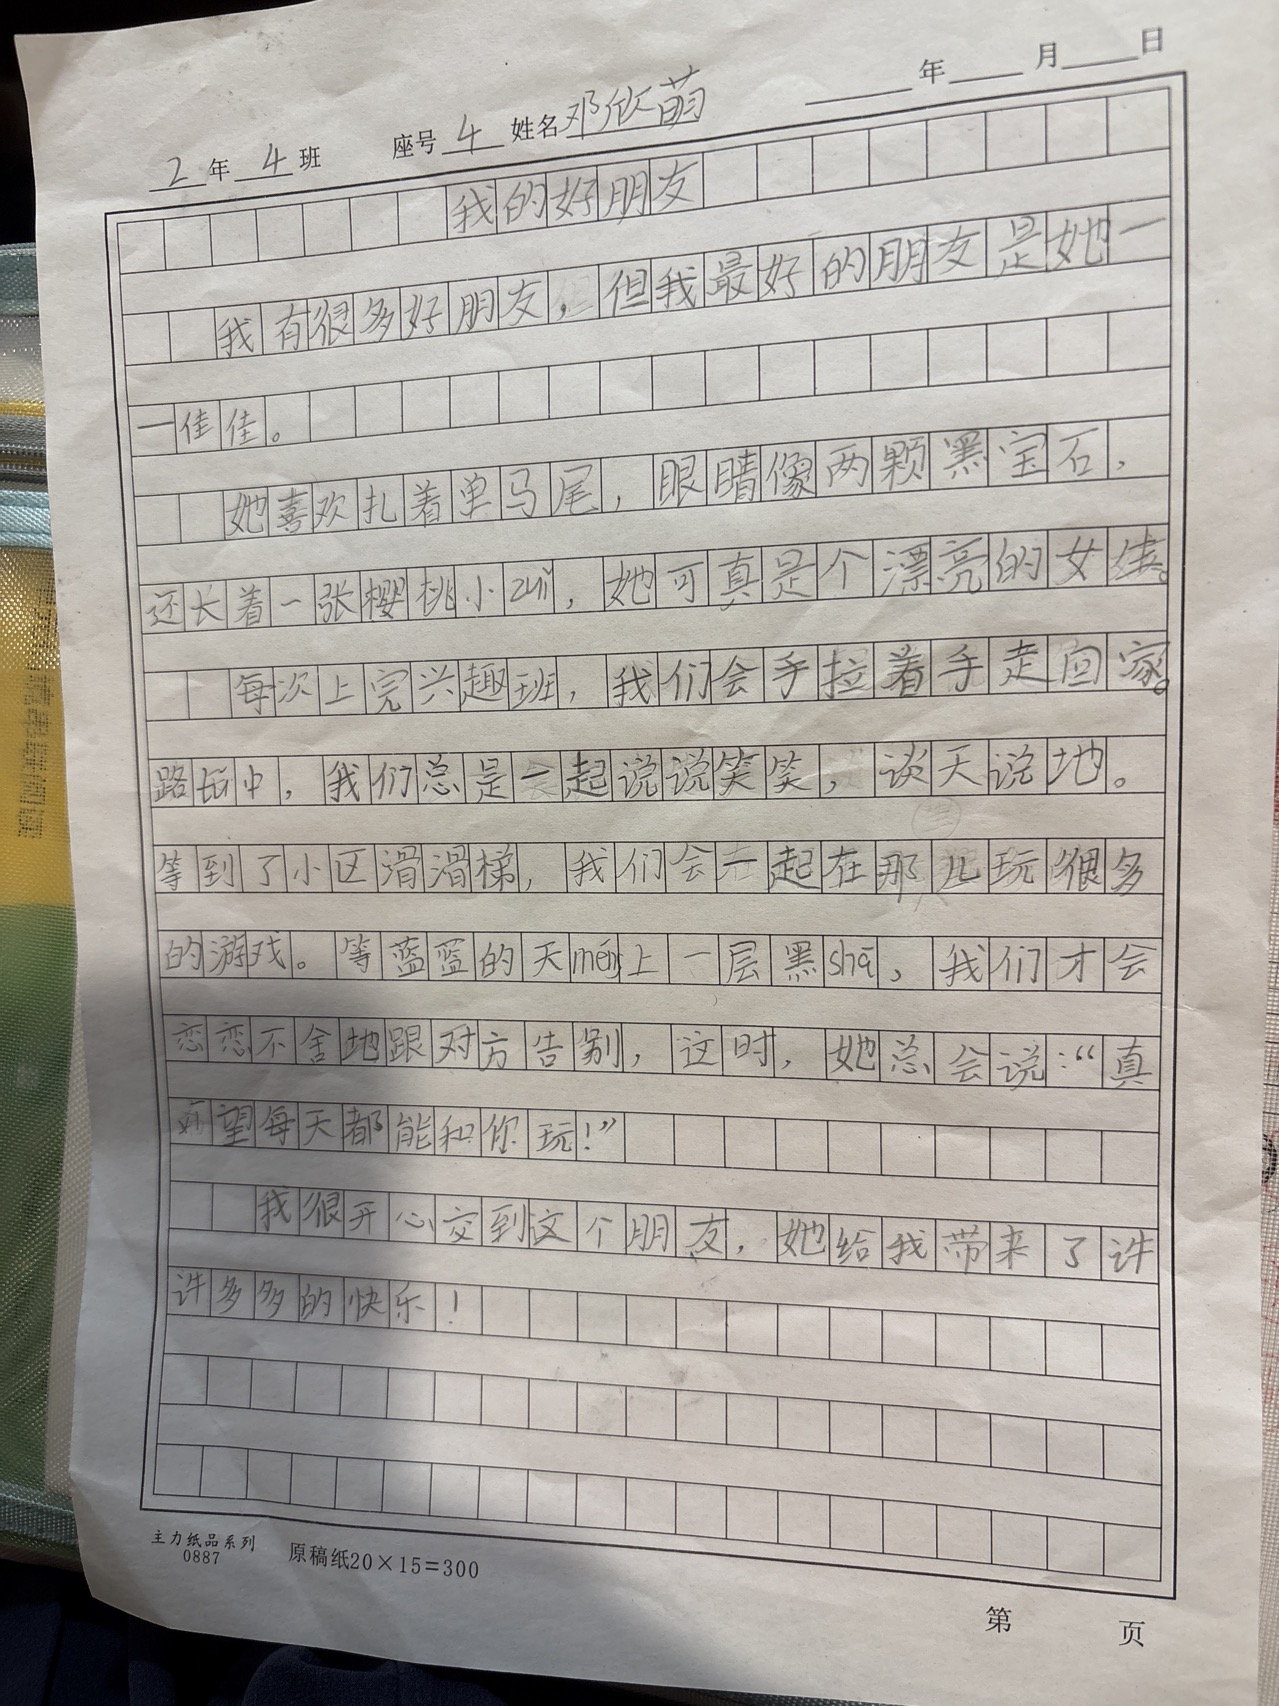 年 月 日
2年4班 座号4 姓名邓欣萌
我的好朋友
我有很多好朋友，但我最好的朋友是她一
一佳佳。
她喜欢扎着单马尾，眼睛像两颗黑宝石，
还长着一张樱桃小zuǐ，她可真是个漂亮的女佳。
每次上完兴趣班，我们会手拉着手走回家。
路中，我们总是一起说说笑笑，谈天说地。
等到了小区滑滑梯，我们会一起在那儿玩很多
的游戏。等蓝蓝的天méng上一层黑shā，我们才会
恋恋不舍地跟对方告别，这时，她总会说：“真
望每天都能和你玩！”
我很开心交到这个朋友，她给我带来了许
许多多的快乐！
主力纸品系列
0887
原稿纸20×15=300
第 页